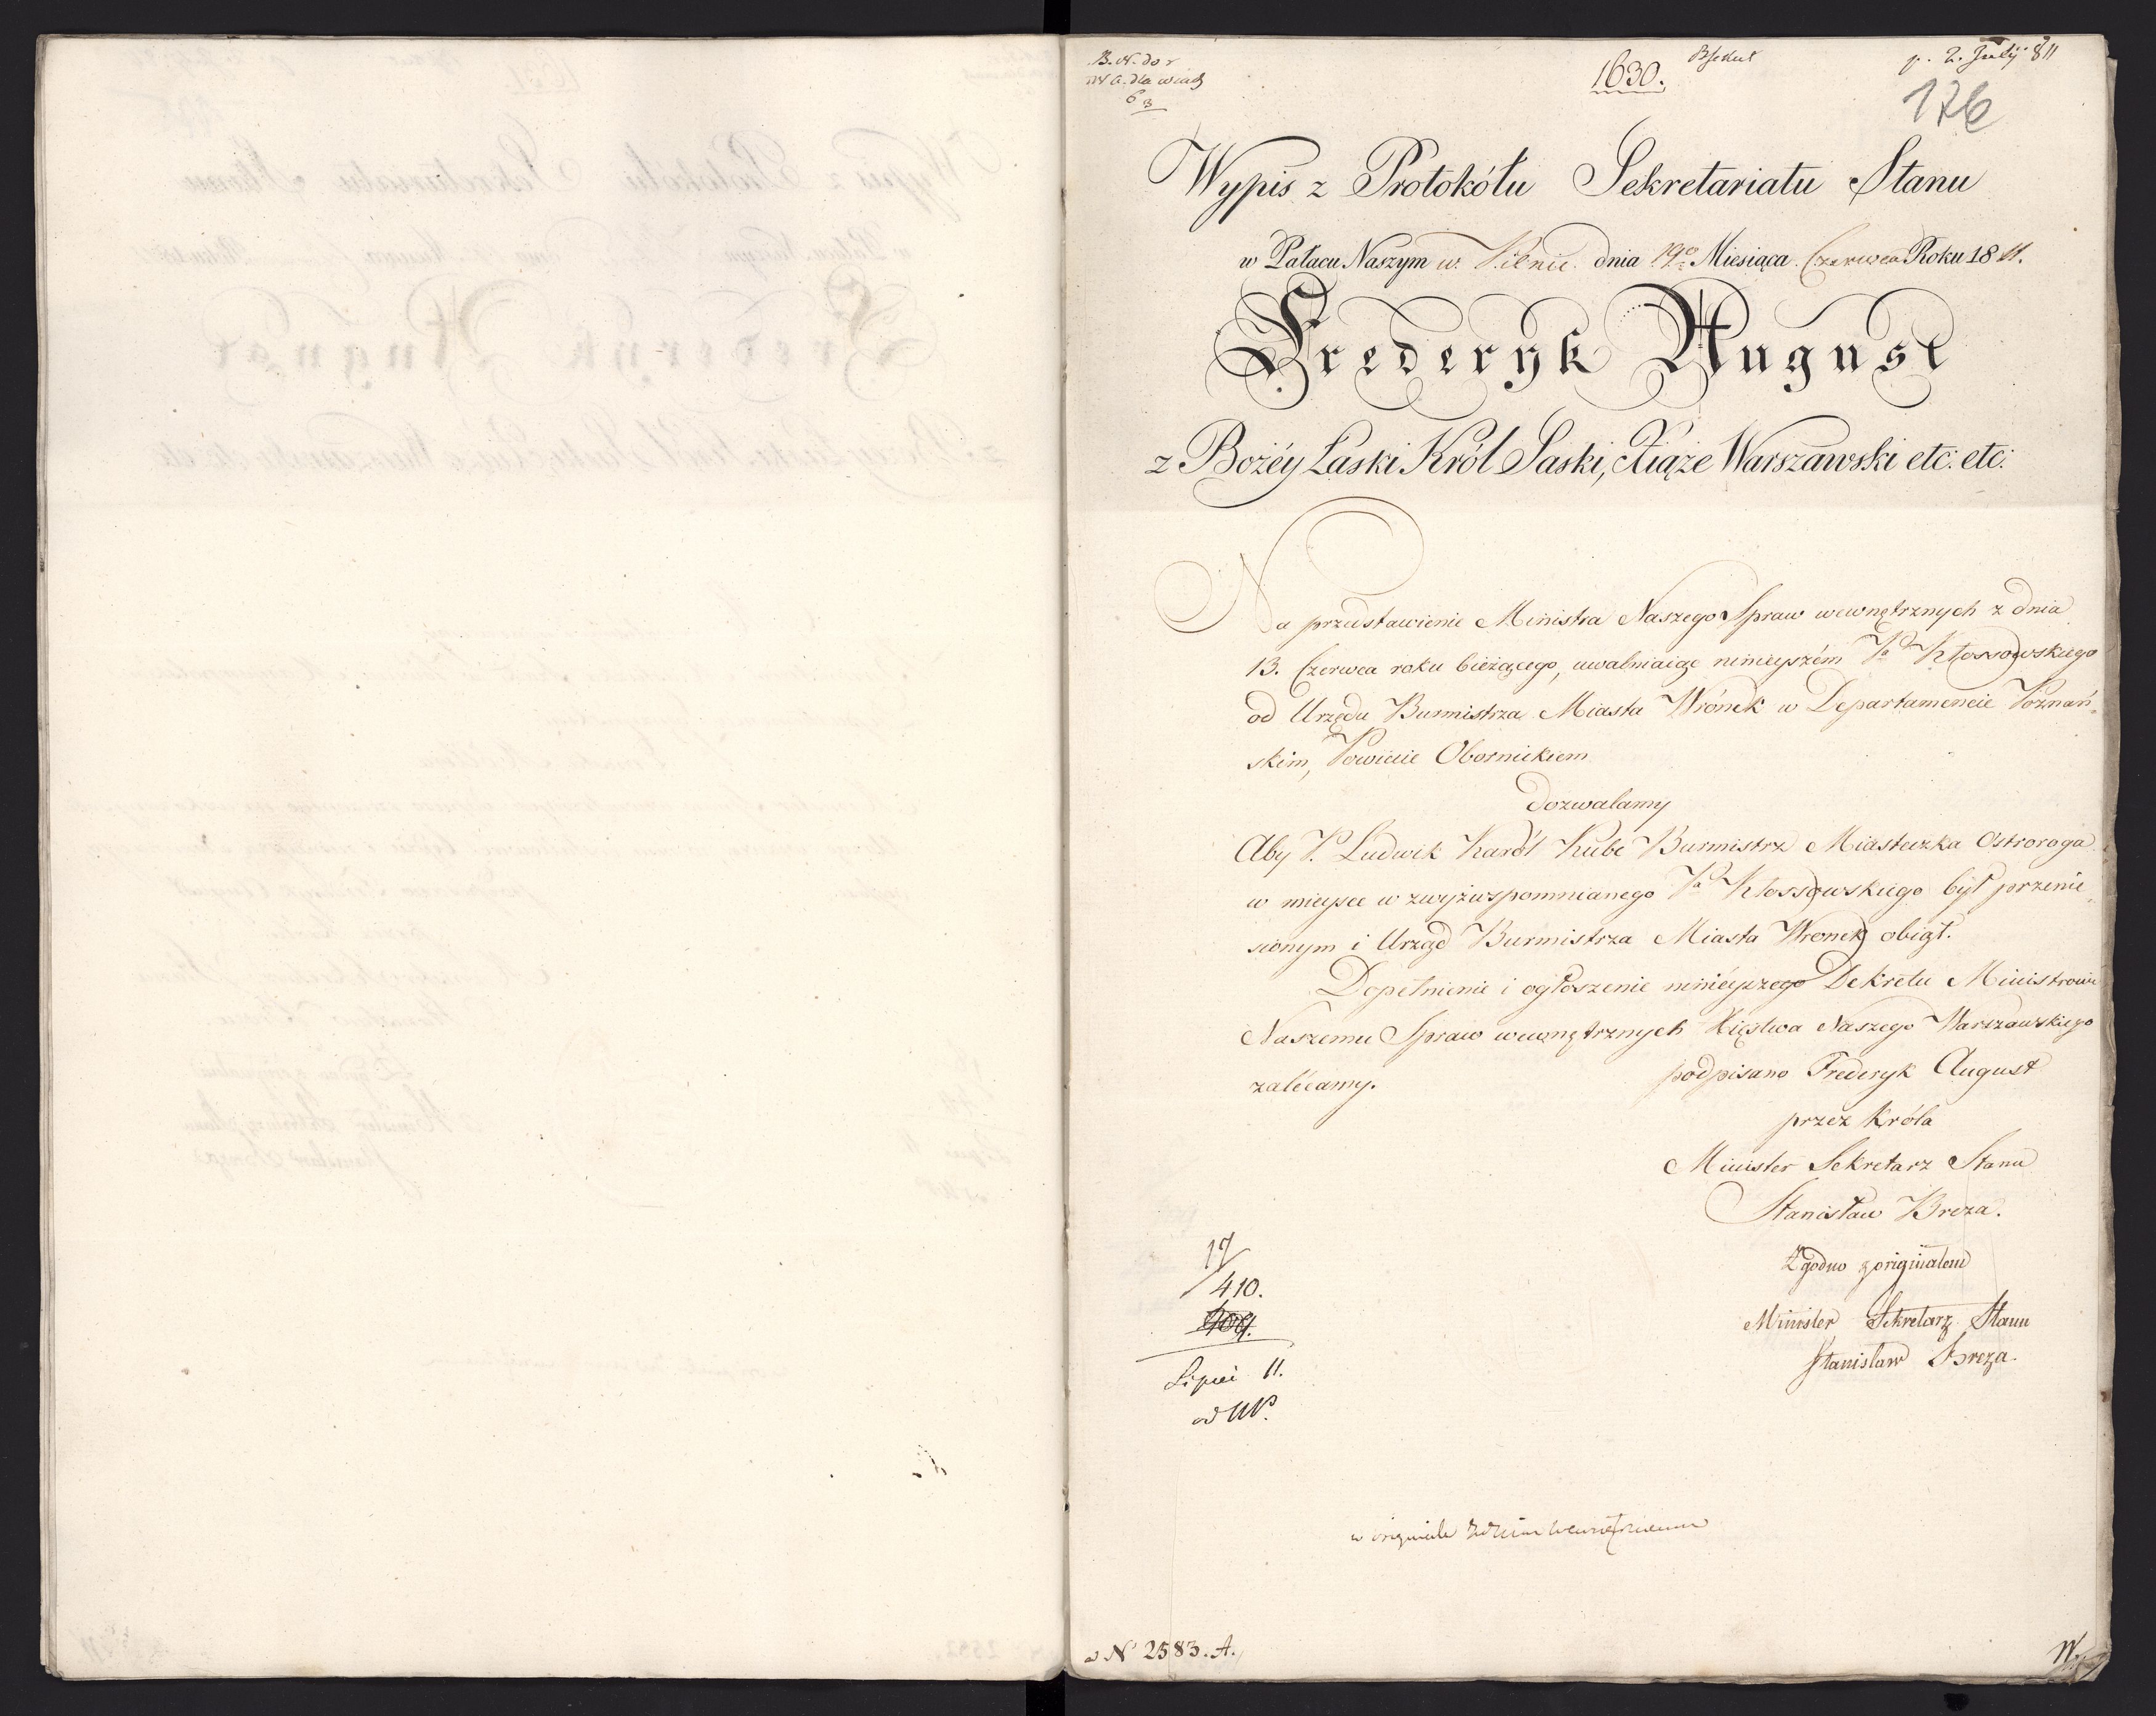 1630.
p. 2. July 811
176
Wypis z Protokółu Sekretariatu Stanu
w Pałacu Naszym w Pilnic. dnia 19º Miesiąca Czerwca Roku 1811.
Frederyk August
z Bożéy Łaski Król Saski, Xiąże Warszawski etc. etc.
Na przedstawienie Ministra Naszego Spraw wewnętrznych z dnia
13. Czerwca roku bieżącego, uwalniaiąc ninieyszém Pa Kłossowskiego
od Urzędu Burmistrza Miasta Wrónek w Departamencie Poznań„
skim, Powiecie Obornickiem
dozwalamy
Aby P. Ludwik Karól Kube Burmistrz Miasteczka Ostroroga
w mieysce w zwyżwspomnianego Pa Kłossowskiego był przenie„
sionym i Urząd Burmistrza Miasta Wronek obiął.
Dopełnienie i ogłoszenie ninieyszego Dekretu Ministrowi
Naszemu Spraw wewnętrznych Xięstwa Naszego Warszawskiego
zalécamy.
podpisano Frederyk August
przez Króla
Minister Sekretarz Stanu
Stanisław Breza.
Zgodno z originałem
Minister Sekretarz Stanu
Stanisław Breza.
17
410.
409.
Lipiec 11.
w originale
N 2583. A.